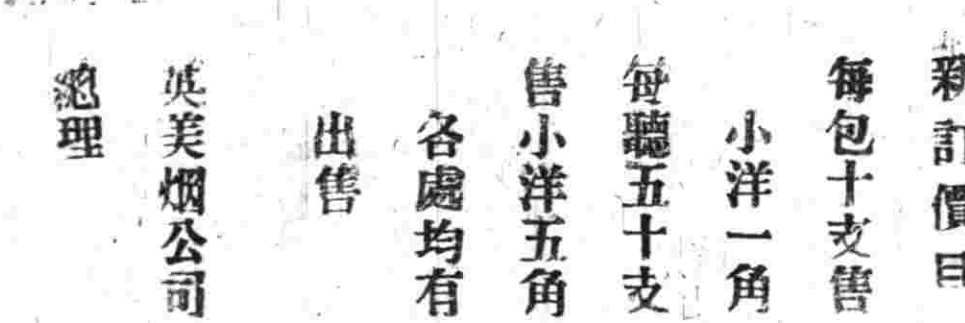 新訂價目
每包十支售
小洋一角
每聽五十支
售小洋五角
各處均有
出售
英美烟公司
總理